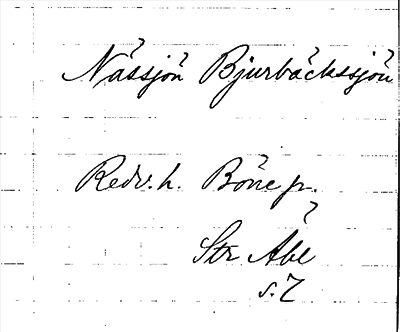 Nässjön Bjurbäckssjön
Redv. h. Böne p.
Str Åbl
s. 7